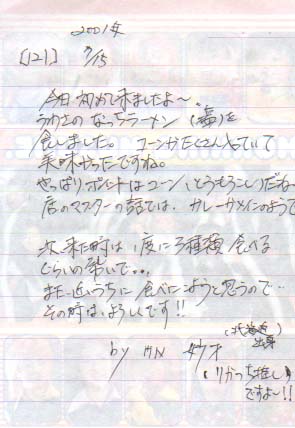 2001年
[121] 7/15
今日初めて来ましたよ〜。
うわさのなっちラーメン(塩)を
食しました。コーンがたくさん入っていて
美味やったですね。
やっぱりポイントはコーン(とうもろこし)だね
店のマスターの話では、カレーがメインのようで
次、来た時は1度に3種類食べる
ぐらいの勢いで。。。
また近いうちに食べにこようと思うので…
その時は、よろしくです!!
(北海道
出身)
by HN
(りかっち推し)
ですよ〜!!